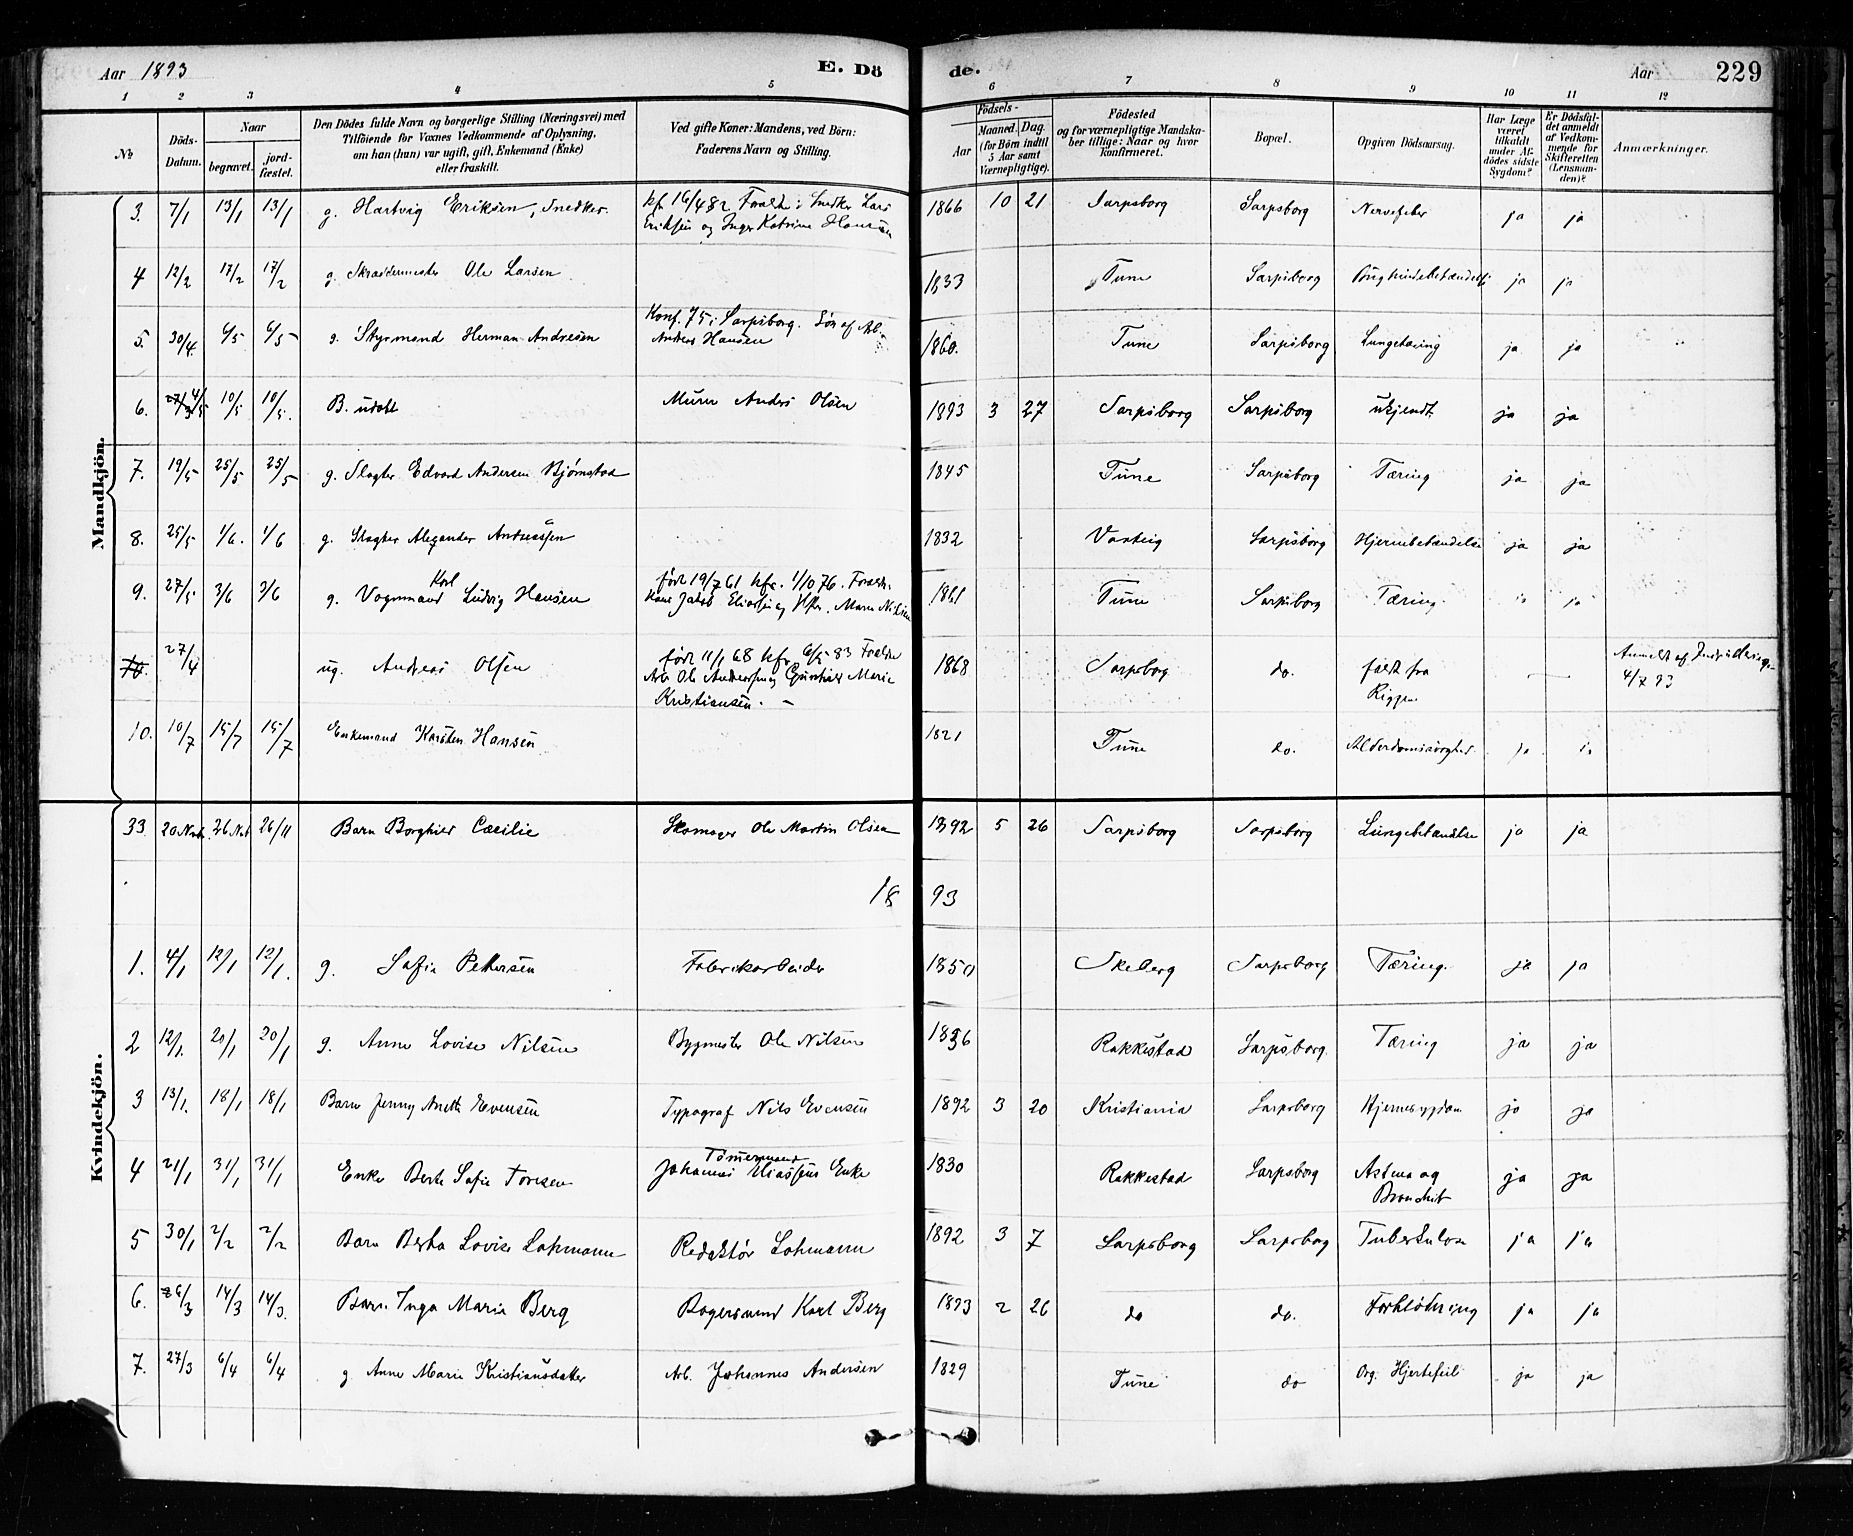 Aar 1893 E. Dö de. Aar 229
1 2 3 4 5 6 7 8 9 10 11 12
No. Döds-Datum. Naar begravet. jordfæstet. Den Dödes fulde Navn og borgerlige Stilling (Næringsvei) med Tilföiende for Voxnes Vedkommende af Oplysning, om han (hun) var ugift, gift, Enkemand (Enke) eller fraskilt. Ved gifte Koner: Mandens, ved Börn: Faderens Navn og Stilling. Födsels- Aar Maaned. Dag. (for Börn indtil 5 Aar samt Værnepligtige). Födested og for værnepligtige Mandskaber tillige: Naar og hvor konfirmeret. Bopæl. Opgiven Dödsaarsag. Har Læge været tilkaldt under Afdödes sidste Sygdom? Er Dödsfaldet anmeldt af Vedkommende for Skifteretten (Lensmanden)? Anmærkninger.
Mandkjön.
3. 7/1 13/1 13/1 g. Hartvig Eriksen, Snedker. kf. 16/4 82 Foræld: Snedker Lars Eriksen og Inger Katrine Hansen 1866 10 21 Sarpsborg Sarpsborg Nervefeber ja ja
4 12/2 17/2 17/2 g. Skræddermester Ole Larsen 1833 Tune Sarpsborg ja ja
5. 30/4. 6/5 6/5 g. Styrmand Herman Andresen Konf. 75 i Sarpsborg. Søn af Arb. Anders Hansen 1860. Tune Sarpsborg Lungetæring ja ja
6. 4/5 10/5 10/5. B. udøbt Murer Anders Olsen 1893 3 27 Sarpsborg Sarpsborg ukjendt ja ja
7. 19/5 25/5 25/5 g. Slagter Edvard Andersen Bjørnstad 1845 Tune Sarpsborg Tæring ja ja
8. 25/5 1/6. 1/6 g. Slagter Alexander Andreassen 1832 Varteig Sarpsborg Hjernebetændelse ja ja
9. 27/5 3/6 3/6 g. Vognmand Karl Ludvig Hansen født 19/7 61 kfr. 1/10 76. Foræld. Hans Jakob Eliassen og Hstr. Maren Nilsen 1861 Tune Sarpsborg Tæring ja ja
10. 27/4 ug. Andreas Olsen født 11/1 68 kfr. 6/5 83 Forældr Arb. Ole Andersen og Gunhild Marie Kristiansen. — 1868 Sarpsborg do. faldt fra Riggen — Anmeldt af 4/7 93
10. 10/7 15/7 15/7 Enkemand Karsten Hansen 1821 Tune do. ja ja
Kvindekjön.
33 20 Nov. 26 Nov 26/11 Barn Borghild Cæcilie Skomager Ole Martin Olsen 1892 5 26 Sarpsborg Sarpsborg Lungebetændelse ja ja
1893
1. 4/1 12/1 12/1. g. Sofie Pettersen Fabrikarbeider 1850 Skeberg Sarpsborg Tæring. ja ja
2 12/1. 20/1 20/1 g. Anne Lovise Nilsen Bygmester Ole Nilsen 1836 Rakkestad Sarpsborg. Tæring ja ja
3 13/1. 18/1 18/1 Barn Jenny Anette Evensen Typograf Nils Evensen 1892 3 20 Kristiania Sarpsborg Hjernesygdom ja ja
4 21/1 31/1 31/1 Enke Berte Sofie Toresen Tømmermand Johannes Eliassens Enke 1830 Rakkestad Sarpsborg Astma og Bronchit ja ja
5 30/1 2/2 2/2 Barn Berta Lovise Lohmann Redaktør Lohmann 1892 3 7 Sarpsborg Sarpsborg Tuberkulose ja ja
6. 26/3 14/3 14/3. Barn Inga Marie Berg Bagersvend Karl Berg 1893 2 26 do do. Forblødning ja ja
7. 27/3 6/4 6/4 g Anne Marie Kristiansdatter Arb. Johannes Andersen 1829 Tune do Org. Hjertefeil ja ja